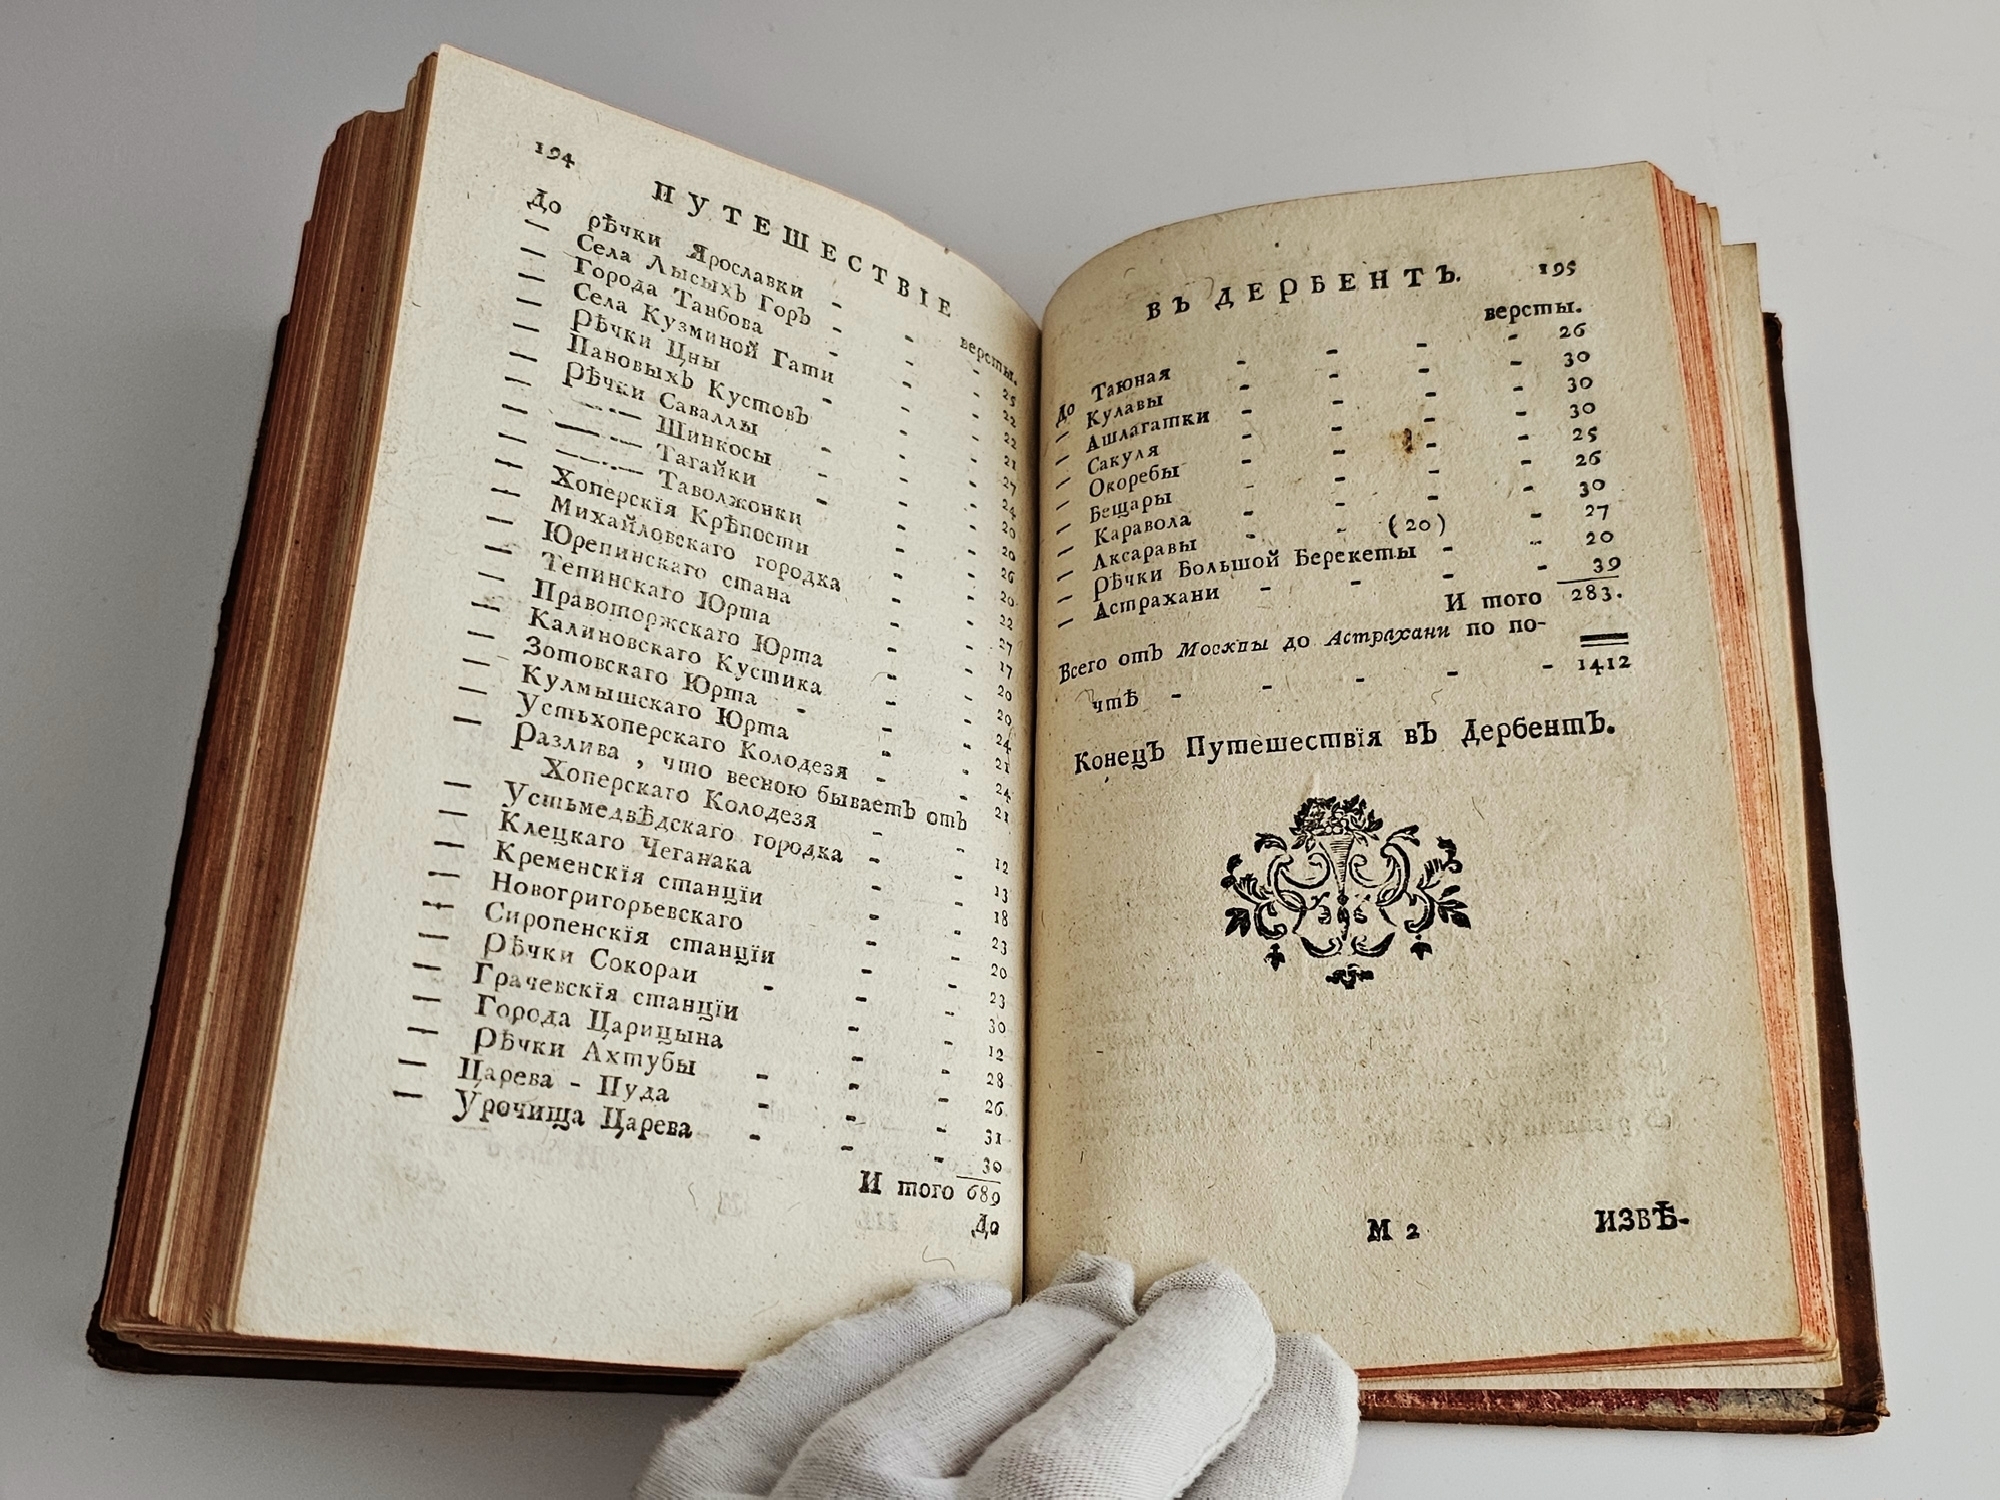 194
ПУТЕШЕСТВІЕ
версты.
До рѣчки Ярославки - - - 25
— Села Лысыхъ Горъ - - - 22
— Города Танбова - - - 22
— Села Кузминой Гати - - 21
— Рѣчки Цны - - - 27
— Пановыхъ Кустовъ - - - 24
— Рѣчки Саваллы - - - 20
— —.— Шинкосы - - - 20
— —.— Тагайки - - - 26
— —.— Таволжонки - - 20
— Хоперскія Крѣпости - - 22
— Михайловскаго городка - - 27
— Юрепинскаго стана - - 17
— Тепинскаго Юрта - - 20
— Правоторжскаго Юрта - - 20
— Калиновскаго Кустика - - 24
— Зотовскаго Юрта - - - 21
— Кулмышскаго Юрта - - 24
— Устьхоперскаго Колодезя - - 21
— Разлива , что весною бываетъ отъ
Хоперскаго Колодезя - - 12
— Устьмедвѣдскаго городка - - 13
— Клецкаго Чеганака - - 18
— Кременскія станціи - - 23
— Новогригорьевскаго - - 20
— Сиропенскія станціи - - 23
— Рѣчки Сокораи - - - 30
— Грачевскія станціи - - 12
— Города Царицына - - 28
— Рѣчки Ахтубы - - - 26
— Царева - Пуда - - - 31
— Урочища Царева - - - 30
И того 689
До
ВЪ ДЕРБЕНТЪ. 195
версты.
До Таюная - - - - 26
— Кулавы - - - - 30
— Ашлагатки - - - - 30
— Сакуля - - - - 30
— Окоребы - - - - 25
— Бещары - - - - 26
— Каравола - - - - 30
— Аксаравы - - (20) - 27
— Рѣчки Большой Берекеты - - 20
— Астрахани - - - - 39
И того 283.
Всего отъ Москвы до Астрахани по по-
чтѣ - - - - - 1412
Конецъ Путешествія въ Дербентъ.
М 2
ИЗВѢ-